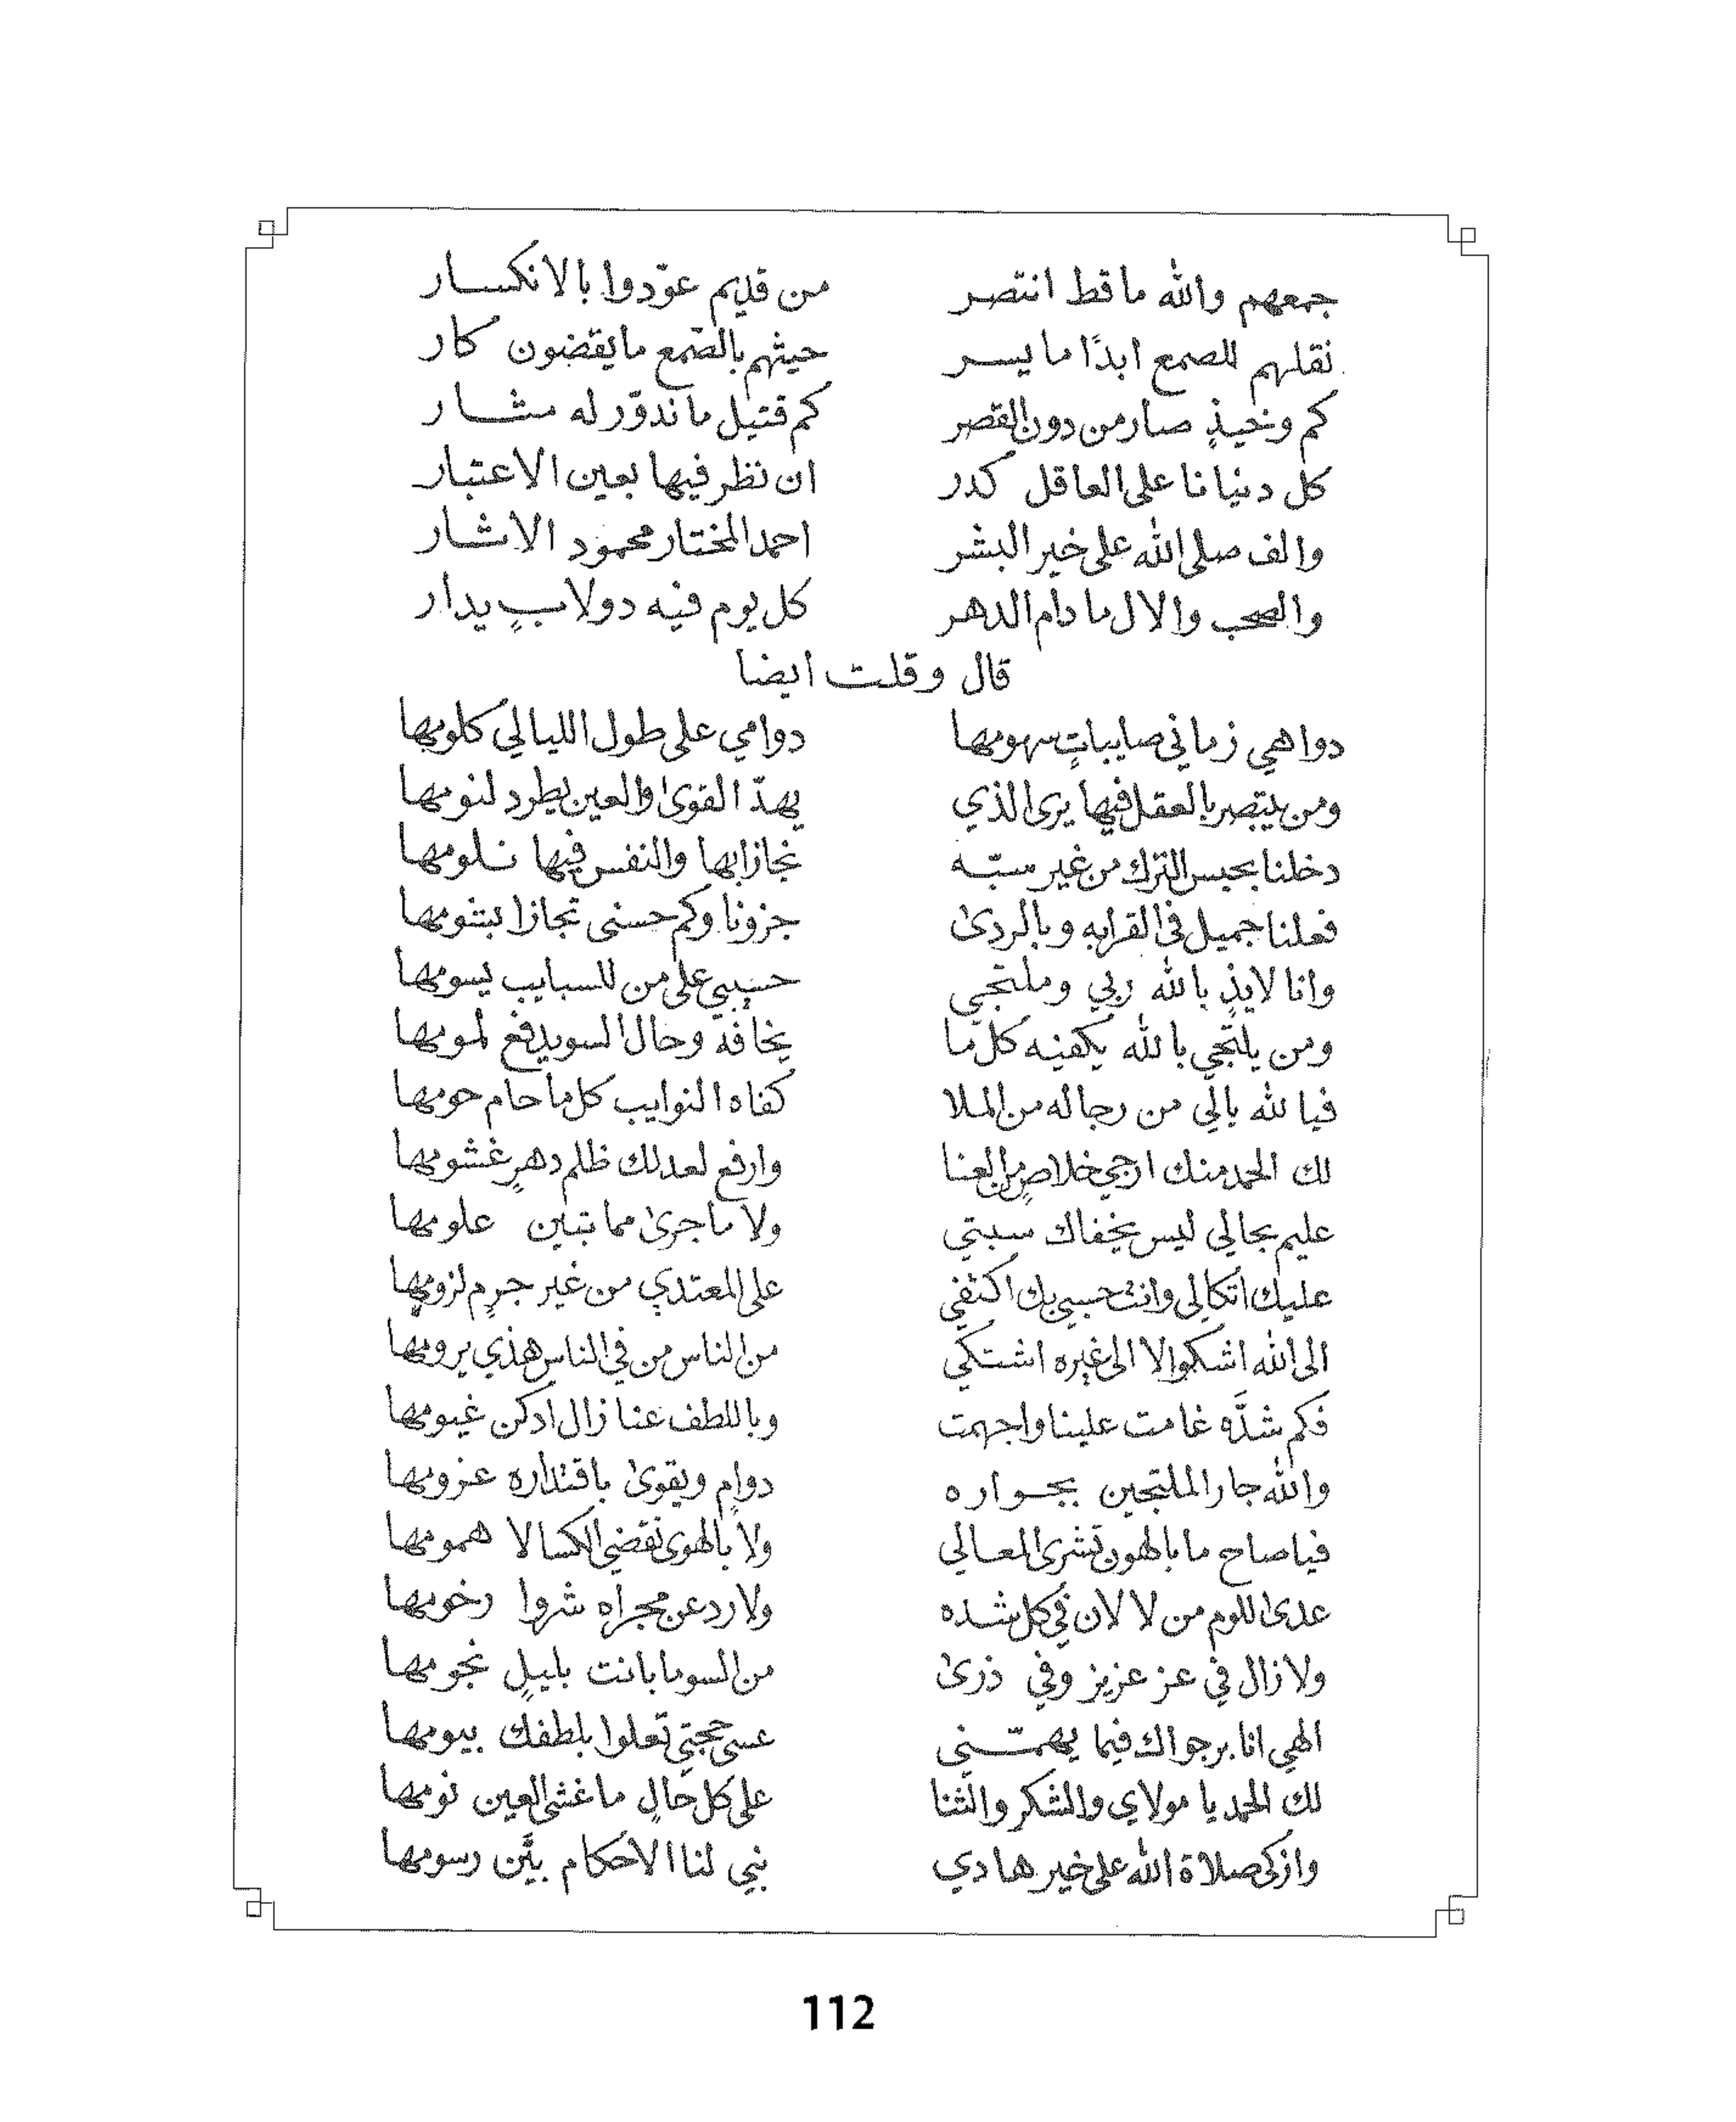 جمعهم والله ما قط انتصر من قديم عوّدوا بالانكسار
نقلهم للصمع ابدًا ما يسر حيثهم بالصّمع ما يقضون كار
كم وخيذٍ صار من دون القصر كم قتيل ما ندوّر له مثار
كل دنيانا على العاقل كدر ان نظر فيها بعين الاعتبار
والف صلى الله على خير البشر احمد المختار محمود الاثار
والصحب والال ما دام الدهر كل يوم فيه دولابٍ يدار
قال وقلت ايضا
دواهي زماني صايباتٍ سهومها دوامي على طول الليالي كلومها
ومن يتبصر بالعقل فيها يرى الذي يهدّ القوى والعين يطرد لنومها
دخلنا بحبس الترك من غير سبّه نجازا بها والنفس فيها نلومها
فعلنا جميل في القرابه وبالردى جزونا وكم حسنى تجازا بشومها
وانا لايذٍ بالله ربي وملتجي حسيبي على من للسبايب يسومها
ومن يلتجي بالله يكفيه كل ما يخافه وحال السو يدفع لمومها
فيا لله يالي من رجا له من الملا كفاه النوايب كل ما حام حومها
لك الحمد منك ارجي خلاصٍ من العنا وارفع لعدلك ظلم دهرٍ غشومها
عليم بحالي ليس يخفاك سبتي ولا ما جرى مما تبين علومها
عليك اتكالي وانت حسبي بك اكتفي على المعتدي من غير جرمٍ لزومها
الى الله اشكوا لا الى غيره اشتكي من الناس من في الناس هذي يرومها
فكم شدّه غامت علينا واجهمت وباللطف عنا زال ادكن غيومها
والله جار الملتجين بجواره دوامٍ ويقوى باقتداره عزومها
فيا صاح ما بالهون تشرى المعالي ولا بالهوى تقضي الكسالا همومها
عدى للوم من لا لان في كل شده ولا رد عن مجراه شروا رخومها
ولا زال في عز عزيز وفي ذرى من السو ما بانت بليلٍ نجومها
الهي انا برجواك فيما يهمّني عسى حجتي تعلوا بلطفك بيومها
لك الحمد يا مولاي والشكر والثنا على كل حالٍ ما غشى العين نومها
وازكى صلاة الله على خير هادي نبي لنا الاحكام بيّن رسومها
112